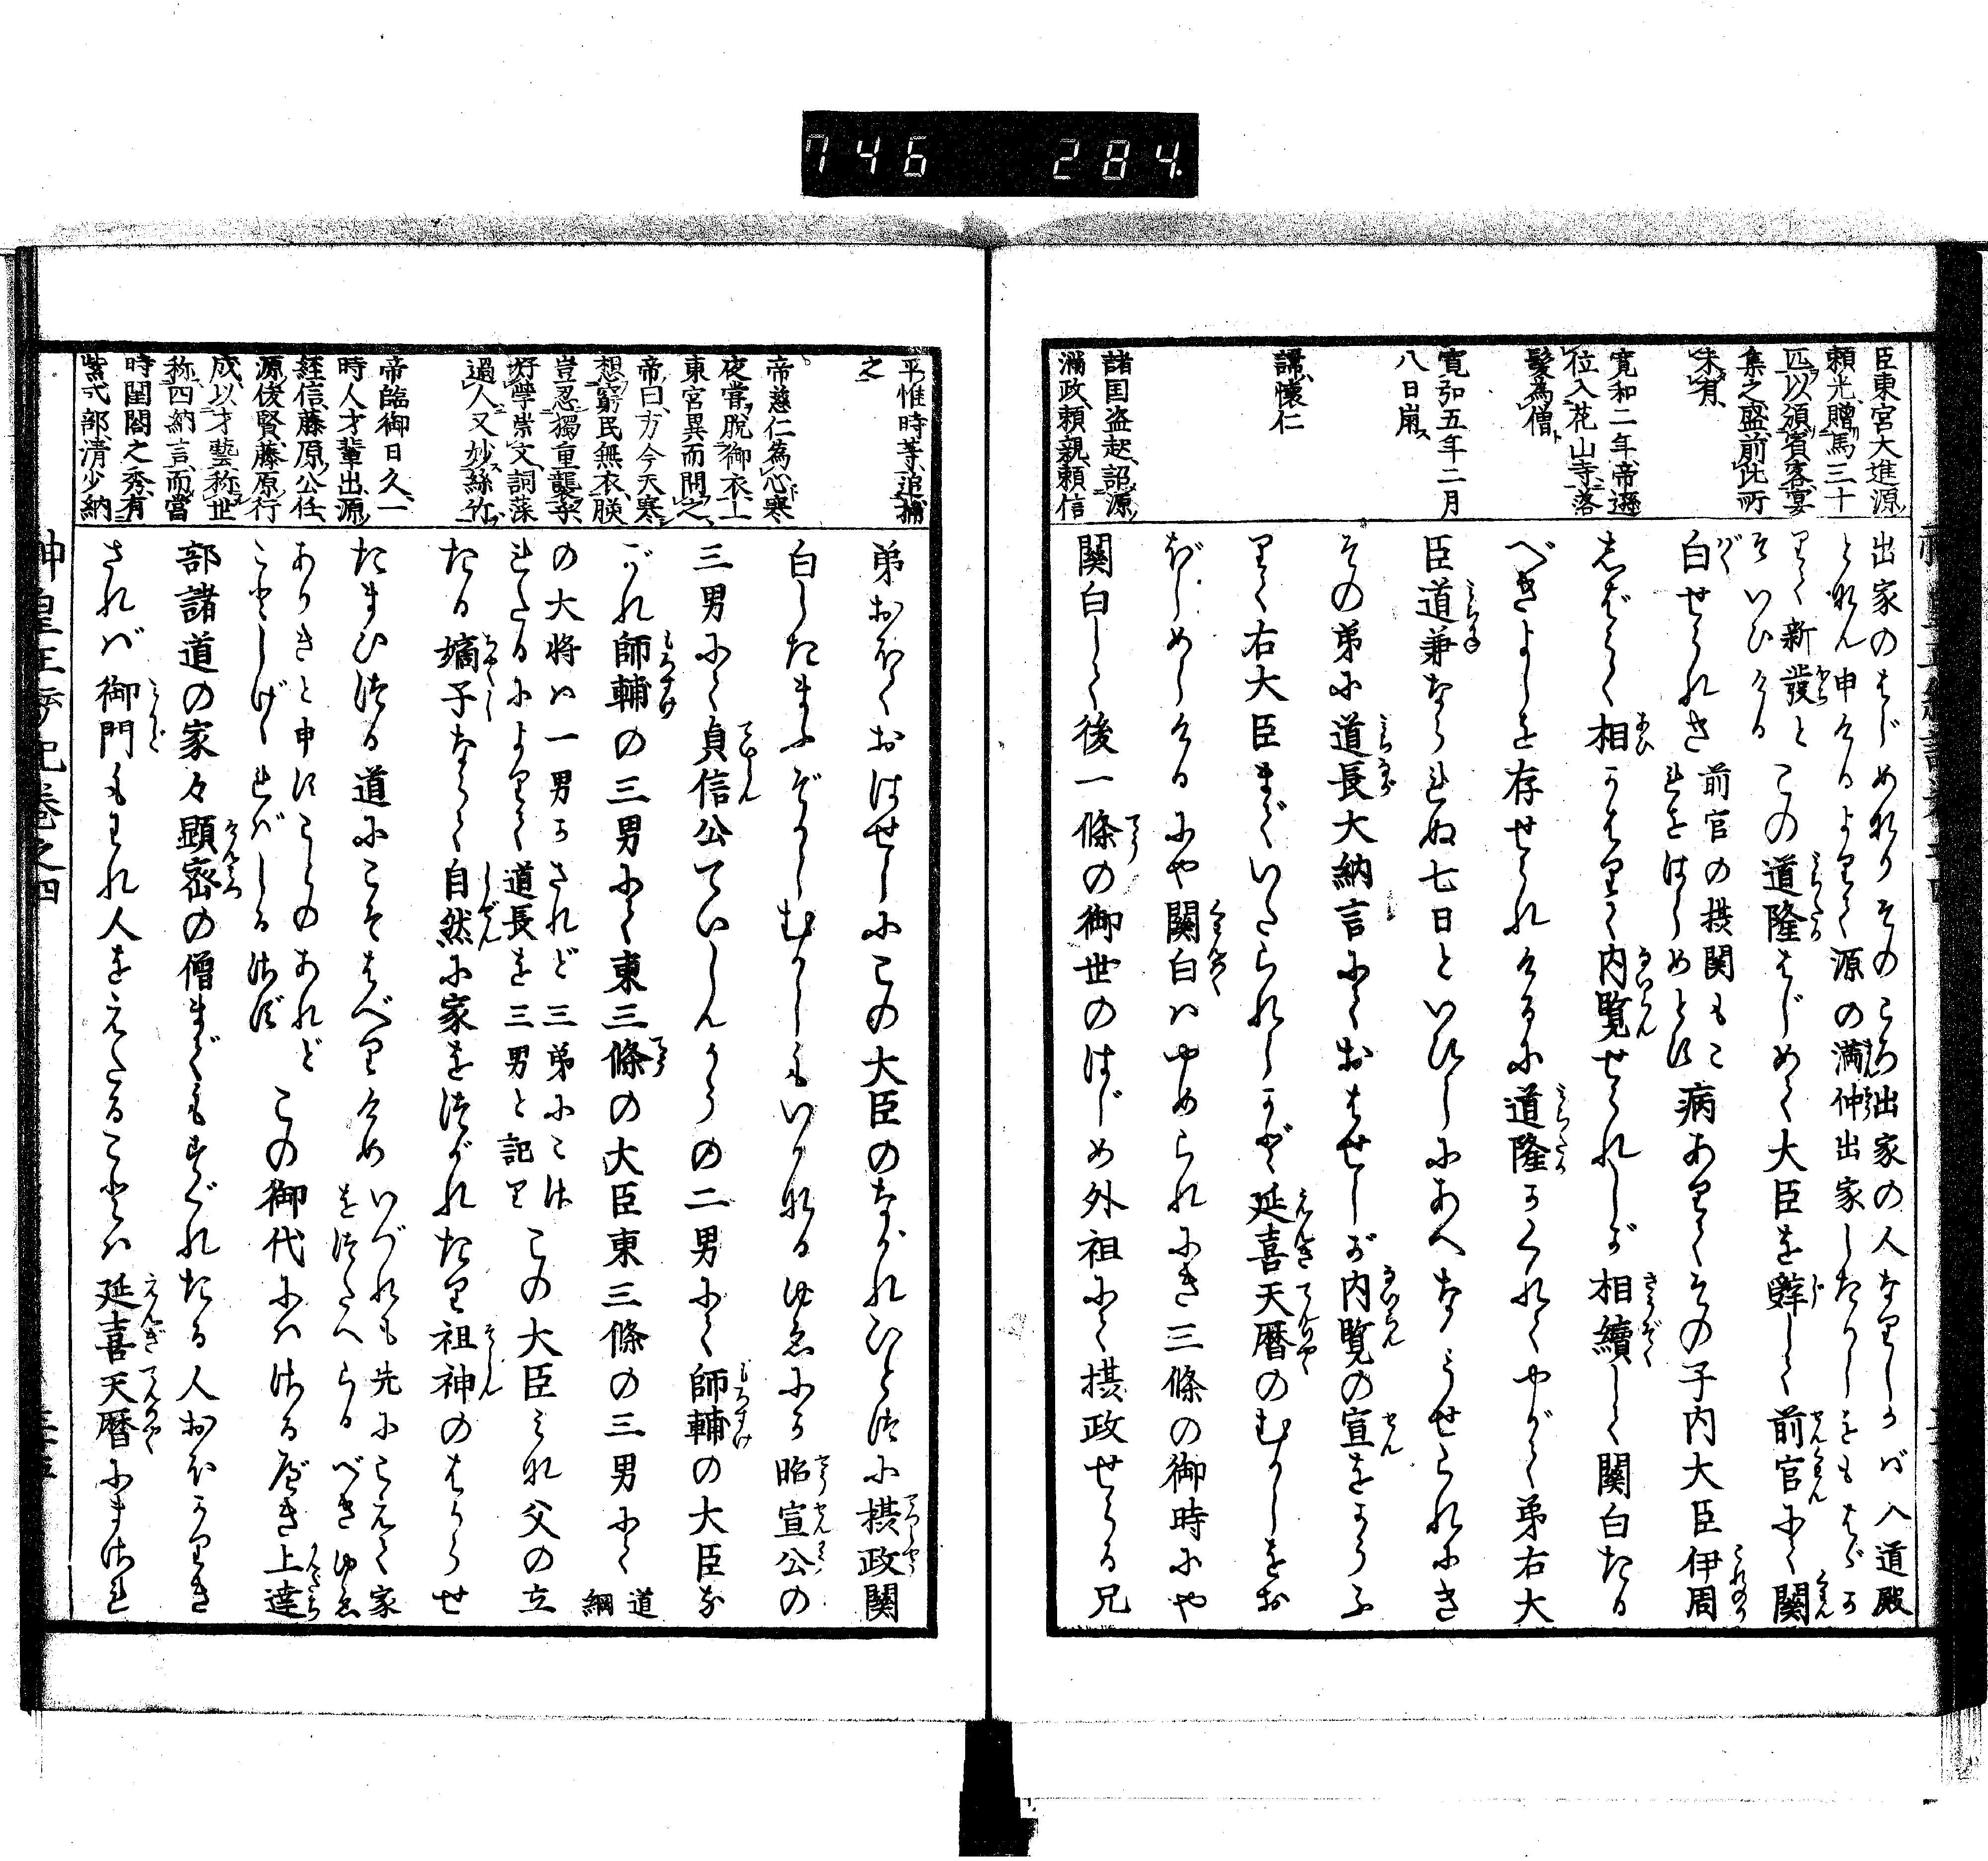 746 284
臣東宮大進源
頼光贈馬三十
匹以頒賓客宴
集之盛前此所
未有
寛和二年帝遜
位入花山寺落
髪為僧
寛弘五年二月
八日崩
諱懐仁
諸国盗起詔源
満政頼親頼信
出家のはじめなりそのころ出家の人なりしかば入道殿
となん申けるよりて源の満仲出家したりしをもはゞか
りて新發と
ぞいひける
この道隆はじめて大臣を辞して前官にて関
白せられき
前官の摂関もこ
れをはじめとす
病ありてその子内大臣伊周
しばらく相かはりて内覧せられしが相續して関白たる
べきよしを存せられけるに道隆かくれてやがて弟右大
臣道兼なられぬ七日といひしにあへなくうせられにき
その弟に道長大納言にておはせしが内覧の宣をかうふ
りて右大臣までいたられしかど延喜天暦のむかしをお
ぼしめしけるにや関白はやめられにき三條の御時にや
関白して後一條の御世のはじめ外祖にて摂政せらる兄
平惟時等追捕
之
帝慈仁為心寒
夜嘗脱御衣上
東宮異而問之
帝曰方今天寒
想窮民無衣朕
豈忍獨重襲乎
好學崇文詞藻
過人又妙絲竹
帝臨御日久一
時人才輩出源
経信藤原公任
源俊賢藤原行
成以才藝称世
称四納言而當
時閨閤之秀有
紫式部清少納
弟おほくおはせしにこの大臣のながれひとつに摂政関
白したまふぞかしむかしもいかなるゆゑにか昭宣公の
三男にて貞信公ていしんかうの二男にて師輔の大臣な
がれ師輔の三男にて東三條の大臣東三條の三男にて
道
綱
の大将は一男かされど三弟にこは
れたるによりて道長を三男と記り
この大臣みな父の立
たる嫡子ならで自然に家をつがれたり祖神のはからせ
たまひつる道にこそはべりけめ
いづれも先にこえて家
をつたへらるべきゆゑ
ありきと申すことのあれど
ことしげゝればしるさず
この御代にはさるべき上達
部諸道の家々顕密の僧までもすぐれたる人おほかりき
されば御門もわれ人をえたることは延喜天暦にまされ
神皇正統記巻之四